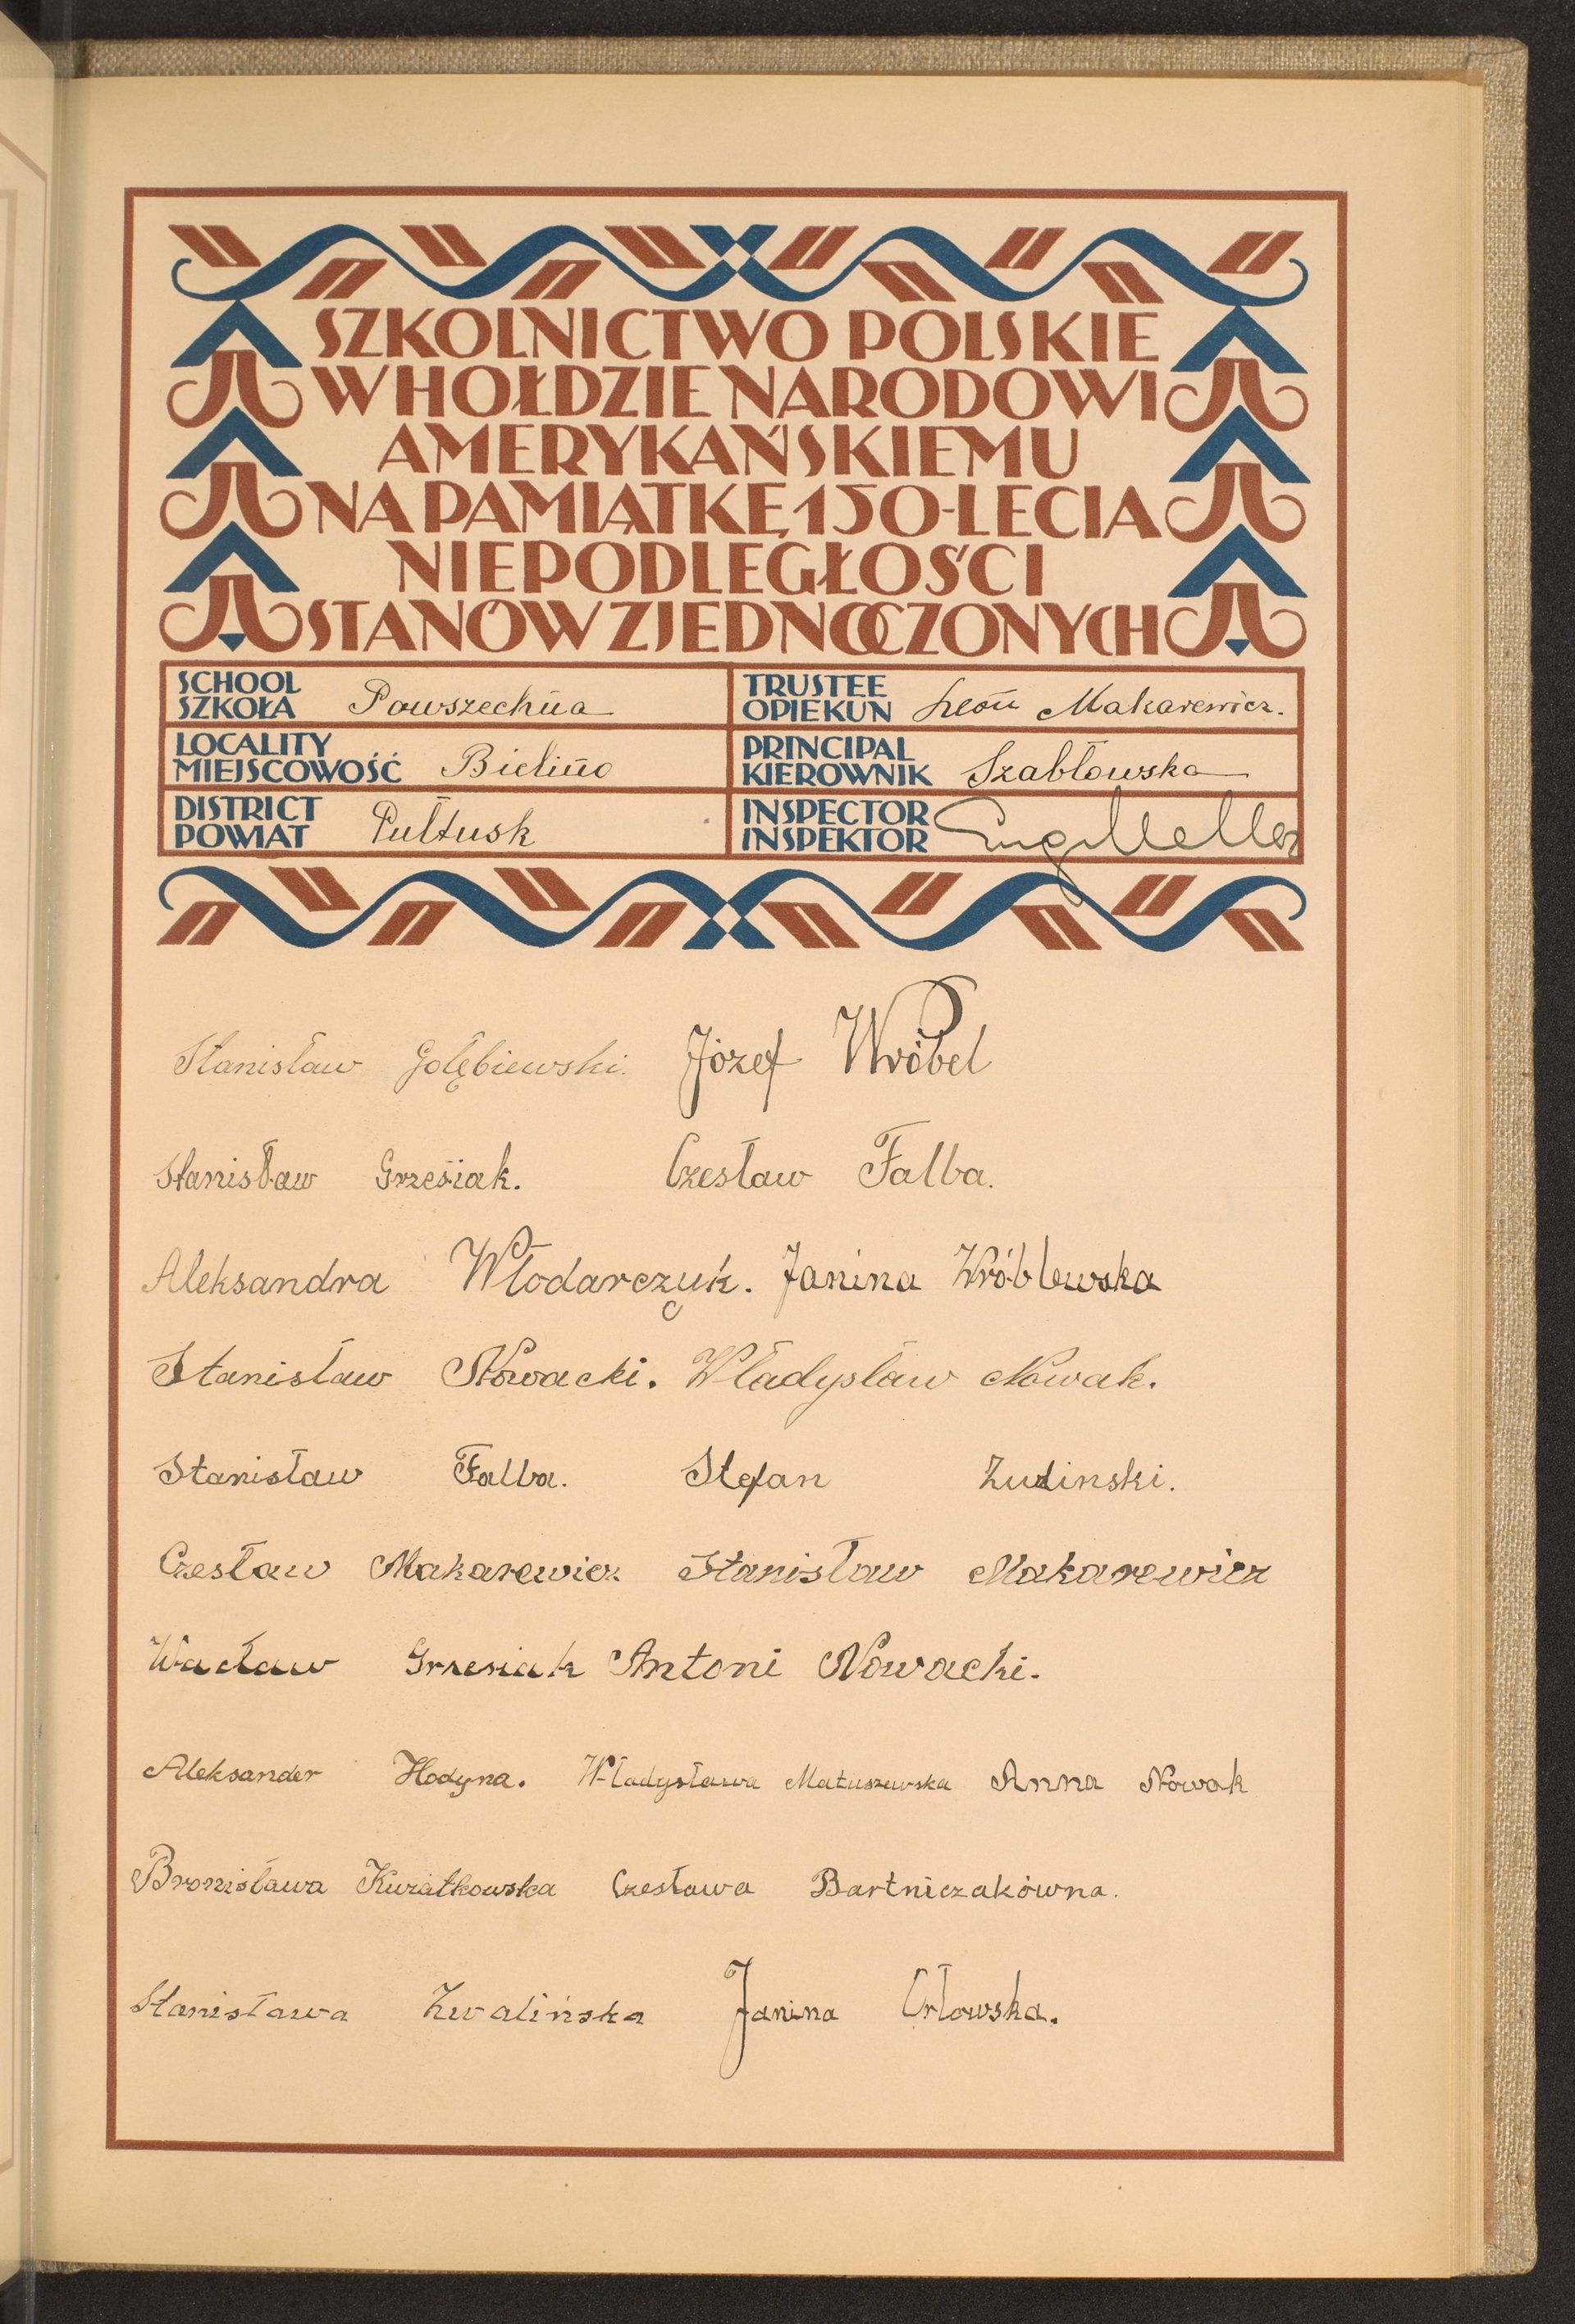 SZKOLNICTWO POLSKIE
W HOŁDZIE NARODOWI
AMERYKAŃSKIEMU
NA PAMIĄTKĘ 150-LECIA
NIEPODLEGŁOŚCI
STANÓW ZJEDNOCZONYCH
SCHOOL
SZKOŁA Powszechna
TRUSTEE
OPIEKUN Leon Makarewicz.
LOCALITY
MIEJSCOWOŚĆ Bielino
PRINCIPAL
KIEROWNIK Szabłowska
DISTRICT
POWIAT Pułtusk
INSPECTOR
INSPEKTOR
Stanisław Gołębiewski. Józef Wróbel
Stanisław Grzesiak. Czesław Falba.
Aleksandra Włodarczyk. Janina Wróblewska
Stanisław Nowacki. Władysław Nowak.
Stanisław Falba. Stefan
Czesław Makarewicz Stanisław Makarewicz
Wacław Grzesiak Antoni Nowacki.
Aleksander Hodyna. Władysława Matuszewska Anna Nowak
Bronisława Kwiatkowska Czesława Bartniczakówna.
Stanisława Zwalińska Janina Orłowska.